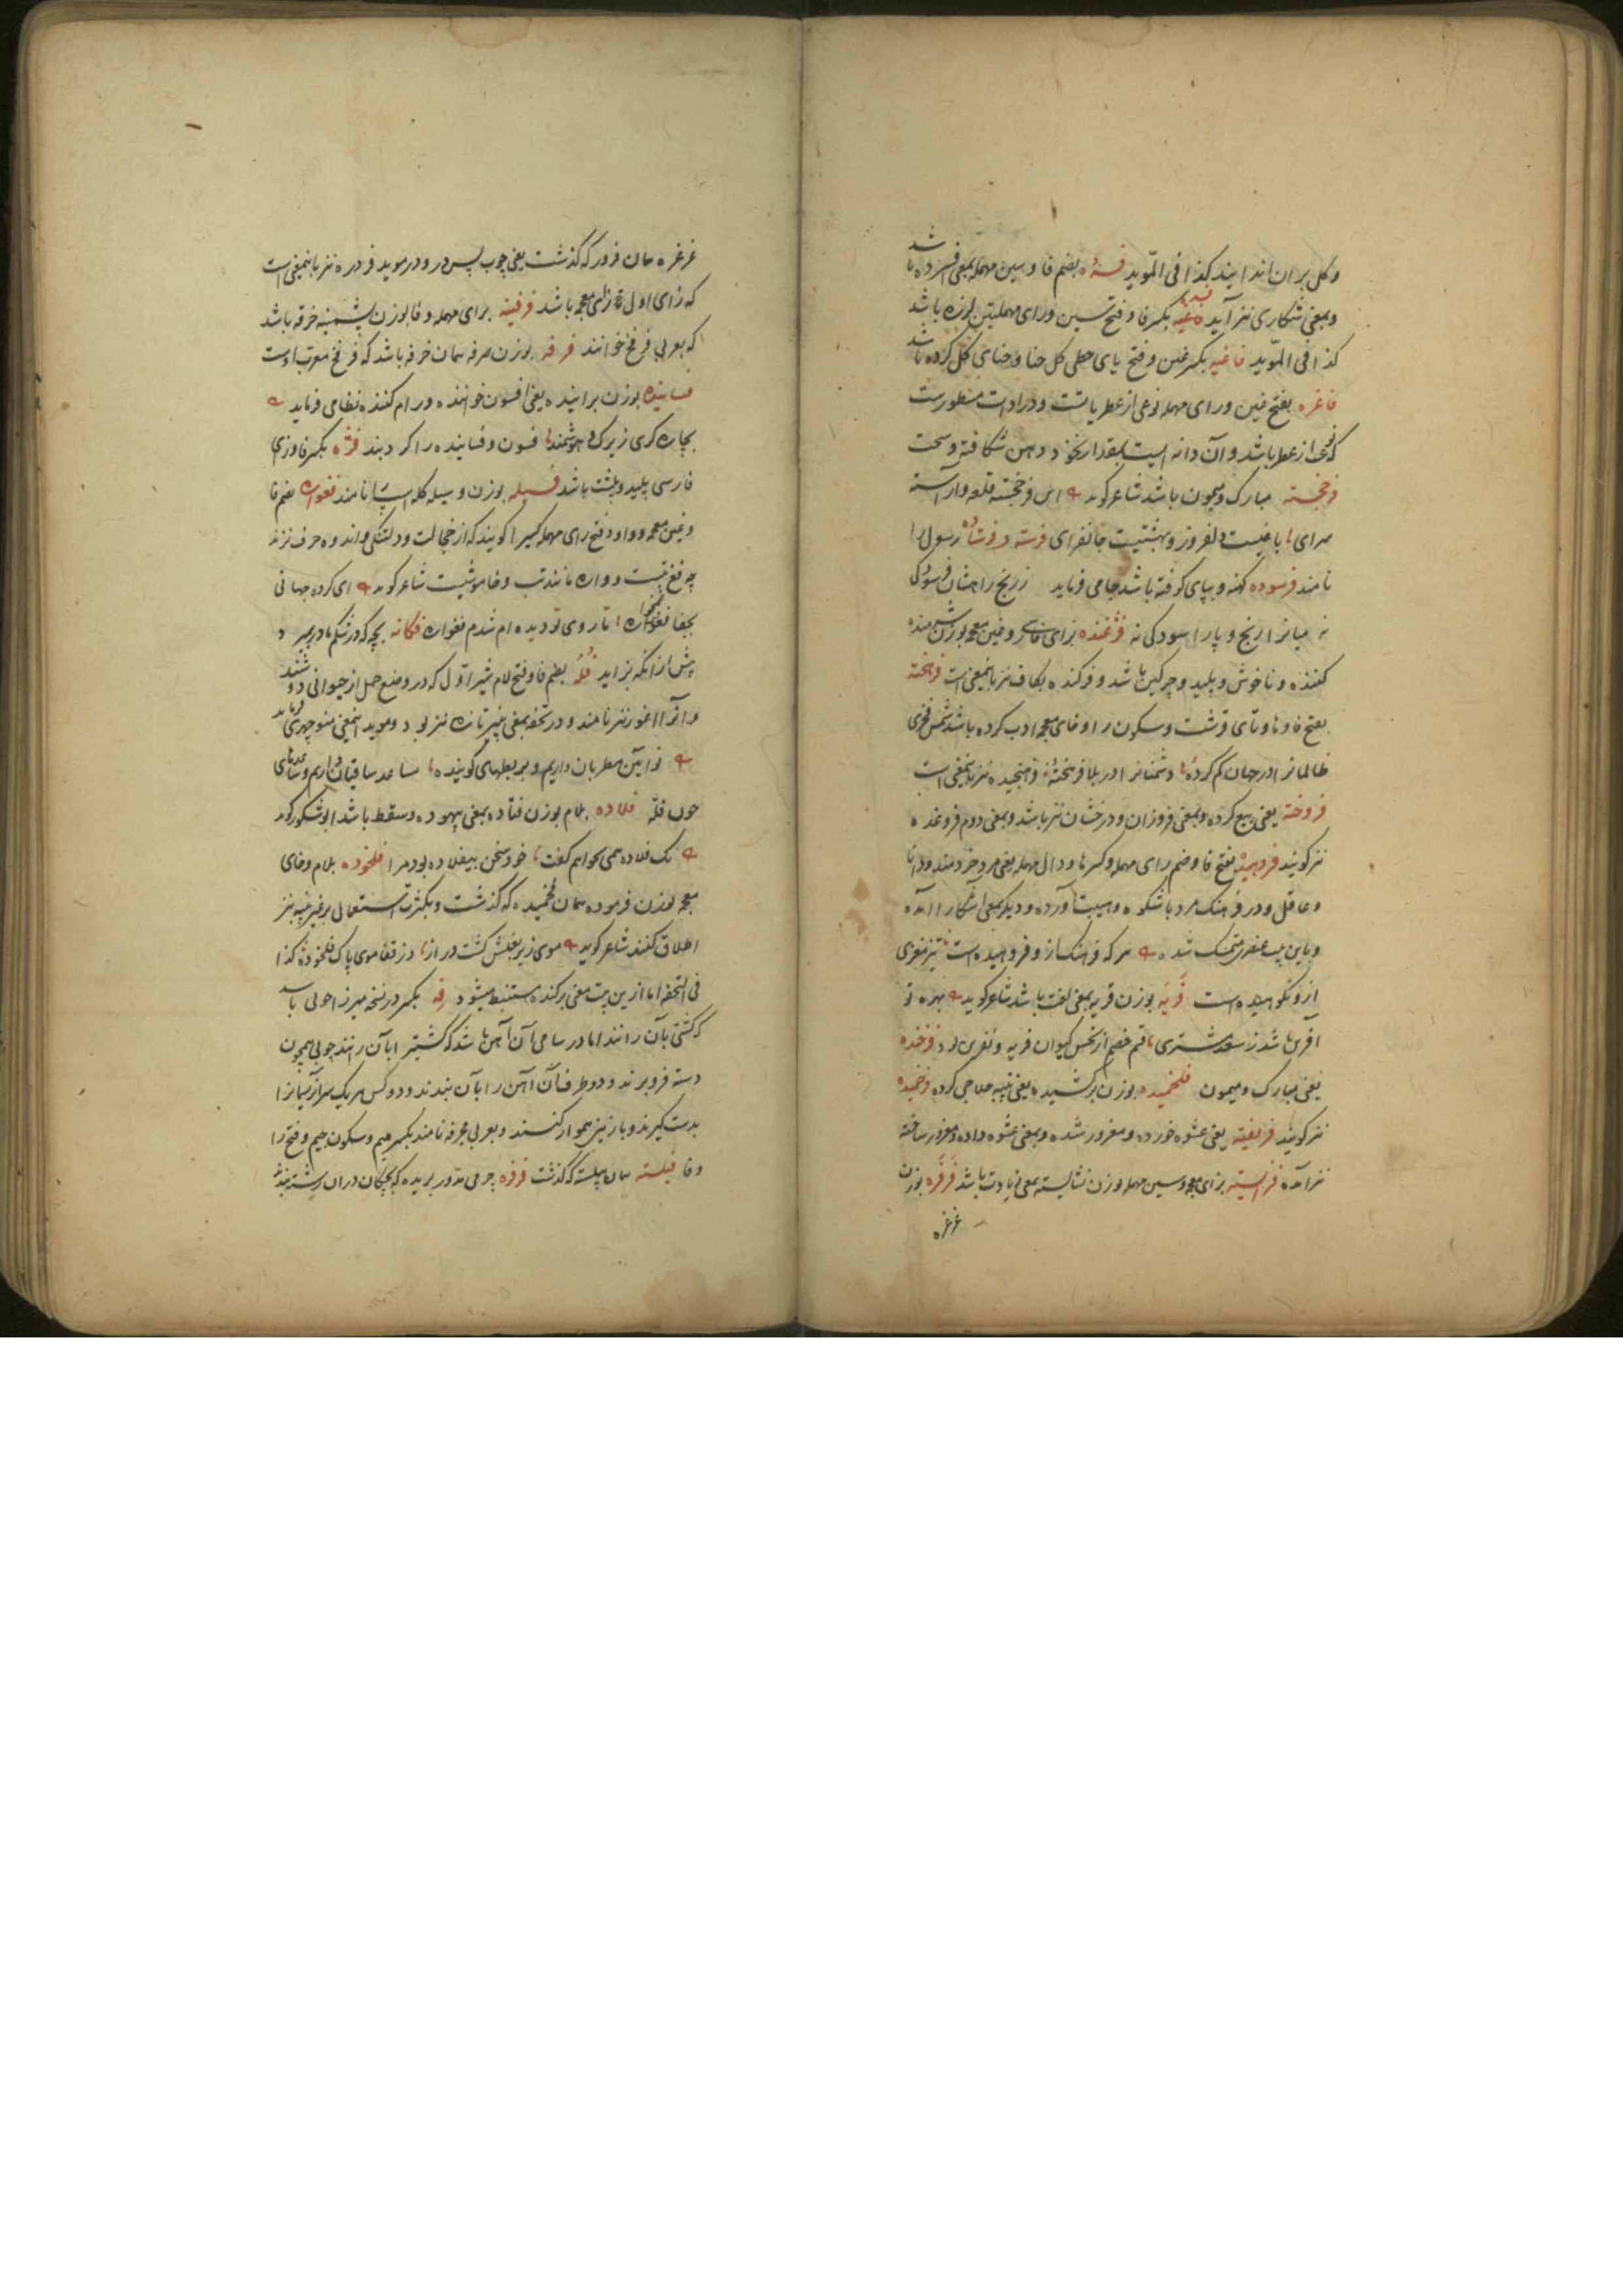 وکل بران اندایند کذا فی المؤید فسرده بضم فا و سین مهمله بمعنی فسرده باشد
وبمعنی شکاری نیز آید بکسر فا و فتح سین ورای مهملتین لرزه باشد
کذا فی المؤید فاغیه بکسر غین و فتح یای حطی کل حنا و حنای کل کرده باشد
فاغره بفتح غین ورای مهمله نوعی از عطریاتست و در ادات مسطورست
که نوعی از عطر باشد و آن دانه ایست بمقدار نخود دهن شکافته و سخت
فرخجسته مبارک و میمون باشد شاعر کوید این فرخجسته قلعه و آراسته
سرای باغیست دلفروز و بهشتیست جانفزای فرسته و فرستاده رسول را
نامند فرسوده کهنه و بپای کوفته باشد جامی فرماید ز رنج راهشان فرسودگی
نه میانرا رنج و پا را سودکی نه فژغنده بزای فارسی و غین معجمه بوزن شرمنده
کننده و ناخوش و پلید و چرکین باشد و فرکنده بکاف نیز باینمعنی است فرهخته
بفتح فا و ها و تای قرشت و سکون را و خای معجمه ادب کرده باشد شمس فخری
ظالمانرا در جهان کم کردهٔ دشمنانرا در بلا فرهختهٔ فرهنجیده نیز باینمعنی است
فروخته یعنی بیع کرده و بمعنی فروزان و درخشان نیز باشد و بمعنی دوم فروغده
نیز کویند فرهیده بفتح فا و ضم رای مهمله و کسر ها و دال مهمله یعنی مرد خردمند و دانا
و عاقل و در فرهنک مرد باشکوه و هیبت آورده و دیکر بمعنی آشکارا آمده
و باین بیت عنصری متمسک شده هرکه فرهنک ازو فروهیده است تیز مغزی
ازو نکوهیده است فریه بوزن قریه بمعنی لعنت باشد شاعر کوید بهره تو
آفرین باشد ز سعد مشتری قسم خصم از نحس کیوان فریه و نفرین بود فرخنده
یعنی مبارک و میمون فلخمیده بوزن برکشیده یعنی پنبه حلاجی کرده فرخمیده
نیز کویند فریفته یعنی عشوه خورده و مغرور شده و بمعنی عشوه داده و مغرور ساخته
نیز آمده فزایسته بزای معجمه و سین مهمله وزن شایسته بمعنی زیادت باشد فرفره بوزن
غرغره
غرغره همان فرفر که گذشت یعنی چوب پس در و در موید فردره نیز باینمعنی است
که رای اول زای معجمه باشد فرفینه برای مهمله و فا بوزن پشمینه خرفه باشد
که بعربی فرفخ خوانند فرفه بوزن صرفه همان خرفه باشد که فرفخ معرب اوست
فساینده بوزن برآینده یعنی افسون خواننده و رام کننده نظامی فرماید
بچاره کری زیرک هوشمند فسون و فساینده را کرد بند فژه بکسر فا و زای
فارسی پلید و پلشت باشد فسیله بوزن وسیله کله اسپ را نامند فغواره بضم فا
و غین معجمه و واو و فتح رای مهمله کسی را کویند که از خجالت و دلتنکی و اندوه حرف نزند
چه فغ بتست و واره مانند بت و خاموشیست شاعر کوید ای کرده جهانی
بجفا فغواره تا روی تو دیده ام شدم فغواره فکانه بچه که در شکم مادر بمیرد
پیش از انکه بزاید فله بضم فا و فتح لام شیر اول که در وضع حمل از حیوانی دوشند
و آنرا آغوز نیز نامند و در تحفه بمعنی پنیر تازه نیز بود و موید اینمعنی منوچهری فرماید
نو آیین مطربان داریم و بربطهای کوینده مساعد ساقیان داریم و ساعدهای
چون فله فلاده بلام بوزن فتاده بمعنی بیهوده و سقط باشد ابوشکور کوید
یک فلاده همی نخواهم گفت خود سخن بیفلاده بود مرا فلخوده بلام و خای
معجمه بوزن فرموده همان فلخمیده که گذشت و بکثرت استعمال بر غیر پنبه نیز
اطلاق کنند شاعر کوید موی زیر بغلش کشت دراز وز قفا موی پاک فلخوده کذا
فی التحفه اما ازین بیت معنی برکنده مستنبط میشود فه بکسر در نسخه میرزا چوبی باشد
که کشتی بآن رانند اما در سامی آن آهن باشد که کشتزار را بآن رانند چوبی همچون
دسته فرو برند و دو طرف آن آهن را بآن بندند و دو کس هر یک سر از ریسمانرا
بدست کیرند و باز زمین هموار کنند و بعربی مجرفه نامند بکسر میم و سکون جیم و فتح را
و فا فیلسته همان پیلسته که گذشت فرفره چرمی مدور بریده که بچکان در ان رشته بندند